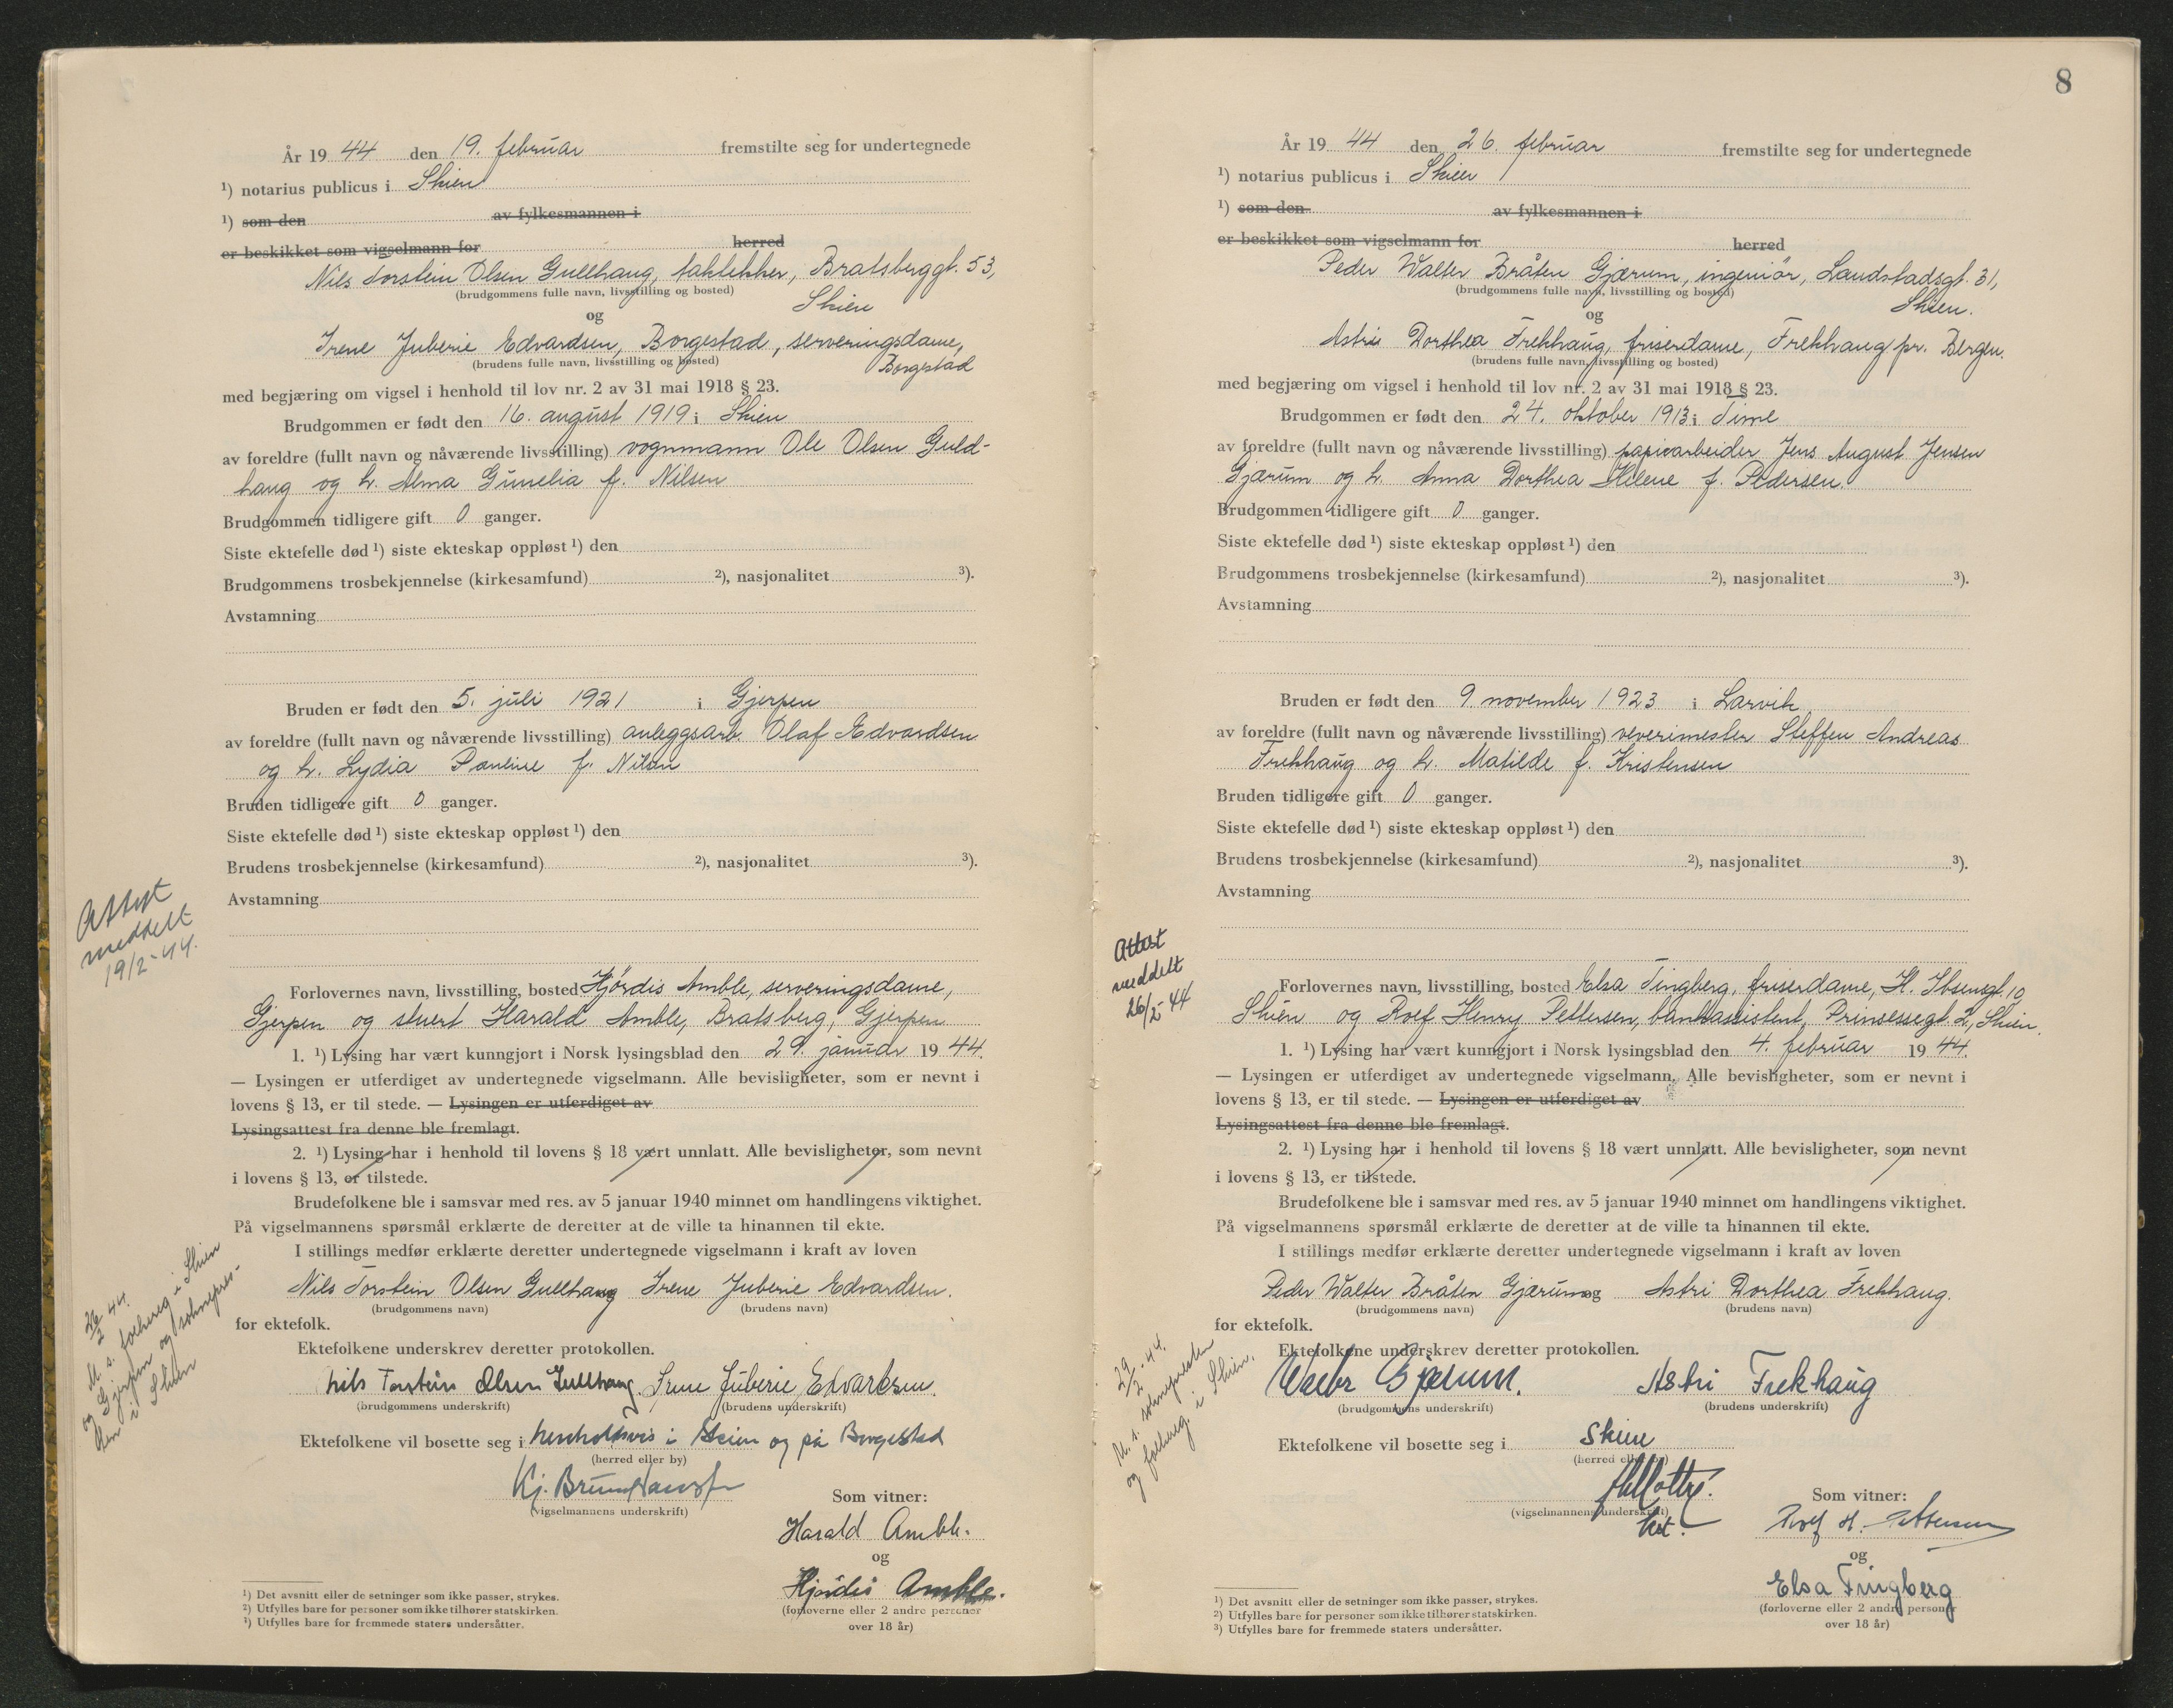 År 19 44 den 19. februar fremstilte seg for undertegnede
¹) notarius publicus i Skien
¹) som den av fylkesmannen i
er beskikket som vigselmann for herred
Nils Torstein Olsen Gullhaug, taktekker, Bratsberggt. 53,
(brudgommens fulle navn, livsstilling og bosted)
Skien
og
Irene Juberie Edvardsen, Borgestad, serveringsdame,
(brudens fulle navn, livsstilling og bosted)
Borgestad
med begjæring om vigsel i henhold til lov nr. 2 av 31 mai 1918 § 23.
Brudgommen er født den 16. august 1919 i Skien
av foreldre (fullt navn og nåværende livsstilling) vognmann Ole Olsen Guld-
haug og h. Alma Gunelia f. Nilsen
Brudgommen tidligere gift 0 ganger.
Siste ektefelle død ¹) siste ekteskap oppløst ¹) den
Brudgommens trosbekjennelse (kirkesamfund) ²), nasjonalitet ³).
Avstamning
Bruden er født den 5. juli 1921 i Gjerpen
av foreldre (fullt navn og nåværende livsstilling) anleggsarb. Olaf Edvardsen
og h. Lydia Pauline f. Nilsen
Bruden tidligere gift 0 ganger.
Siste ektefelle død ¹) siste ekteskap oppløst ¹) den
Brudens trosbekjennelse (kirkesamfund) ²), nasjonalitet ³).
Avstamning
Attest
meddelt
19/2-44.
Forlovernes navn, livsstilling, bosted Hjördis Amble, serveringsdame,
Gjerpen og stuert Harald Amble, Bratsberg, Gjerpen
1. ¹) Lysing har vært kunngjort i Norsk lysingsblad den 29. januar 19 44.
— Lysingen er utferdiget av undertegnede vigselmann. Alle bevisligheter, som er nevnt i
lovens § 13, er til stede. — Lysingen er utferdiget av
Lysingsattest fra denne ble fremlagt.
2. ¹) Lysing har i henhold til lovens § 18 vært unnlatt. Alle bevisligheter, som nevnt
i lovens § 13, er tilstede.
Brudefolkene ble i samsvar med res. av 5 januar 1940 minnet om handlingens viktighet.
På vigselmannens spørsmål erklærte de deretter at de ville ta hinannen til ekte.
I stillings medfør erklærte deretter undertegnede vigselmann i kraft av loven
Nils Torstein Olsen Gullhaug og Irene Juberie Edvardsen.
(brudgommens navn) (brudens navn)
for ektefolk.
26/2 44.
M. s. folkereg. i Skien
og Gjerpen og sokneprес-
ten i Skien
Ektefolkene underskrev deretter protokollen.
Nils Torstein Olsen Gullhaug. Irene Juberie Edvardsen.
(brudgommens underskrift) (brudens underskrift)
Ektefolkene vil bosette seg i henholdsvis i Skien og på Borgestad
(herred eller by)
Kj.
(vigselmannens underskrift)
Som vitner:
Harald Amble.
og
Hjördis Amble.
(forloverne eller 2 andre personer
over 18 år)
¹) Det avsnitt eller de setninger som ikke passer, strykes.
²) Utfylles bare for personer som ikke tilhører statskirken.
³) Utfylles bare for fremmede staters undersåtter.
8
År 19 44 den 26. februar fremstilte seg for undertegnede
¹) notarius publicus i Skien
¹) som den av fylkesmannen i
er beskikket som vigselmann for herred
Peder Walter Bråten Gjærum, ingeniör, Landstadsgt. 31,
(brudgommens fulle navn, livsstilling og bosted)
Skien.
og
Astri Dorthea Frekhaug, friserdame, Frekhaug pr. Bergen.
(brudens fulle navn, livsstilling og bosted)
med begjæring om vigsel i henhold til lov nr. 2 av 31 mai 1918 § 23.
Brudgommen er født den 24. oktober 1913 i Time
av foreldre (fullt navn og nåværende livsstilling) papirarbeider Jens August Jensen
Gjærum og h. Anna Dorthea Helene f. Pedersen.
Brudgommen tidligere gift 0 ganger.
Siste ektefelle død ¹) siste ekteskap oppløst ¹) den
Brudgommens trosbekjennelse (kirkesamfund) ²), nasjonalitet ³).
Avstamning
Bruden er født den 9. november 1923 i Larvik
av foreldre (fullt navn og nåværende livsstilling) veverimester Steffen Andreas
Frekhaug og h. Matilde f. Kristensen
Bruden tidligere gift 0 ganger.
Siste ektefelle død ¹) siste ekteskap oppløst ¹) den
Brudens trosbekjennelse (kirkesamfund) ²), nasjonalitet ³).
Avstamning
Attest
meddelt
26/2-44
Forlovernes navn, livsstilling, bosted Elsa Tingberg, friserdame, H. Ibsensgt. 10
Skien og Rolf Henry Pettersen, bankassistent, Prinsessegt. 2, Skien.
1. ¹) Lysing har vært kunngjort i Norsk lysingsblad den 4. februar 19 44.
— Lysingen er utferdiget av undertegnede vigselmann. Alle bevisligheter, som er nevnt i
lovens § 13, er til stede. — Lysingen er utferdiget av
Lysingsattest fra denne ble fremlagt.
2. ¹) Lysing har i henhold til lovens § 18 vært unnlatt. Alle bevisligheter, som nevnt
i lovens § 13, er tilstede.
Brudefolkene ble i samsvar med res. av 5 januar 1940 minnet om handlingens viktighet.
På vigselmannens spørsmål erklærte de deretter at de ville ta hinannen til ekte.
I stillings medfør erklærte deretter undertegnede vigselmann i kraft av loven
Peder Walter Bråten Gjærum og Astri Dorthea Frekhaug.
(brudgommens navn) (brudens navn)
for ektefolk.
29/2-44.
M. s. soknepresten
og folkereg. i Skien.
Ektefolkene underskrev deretter protokollen.
Walter Gjærum. Astri Frekhaug
(brudgommens underskrift) (brudens underskrift)
Ektefolkene vil bosette seg i Skien
(herred eller by)
(vigselmannens underskrift)
Som vitner:
Rolf H. Pettersen
og
Elsa Tingberg
(forloverne eller 2 andre personer
over 18 år)
¹) Det avsnitt eller de setninger som ikke passer, strykes.
²) Utfylles bare for personer som ikke tilhører statskirken.
³) Utfylles bare for fremmede staters undersåtter.